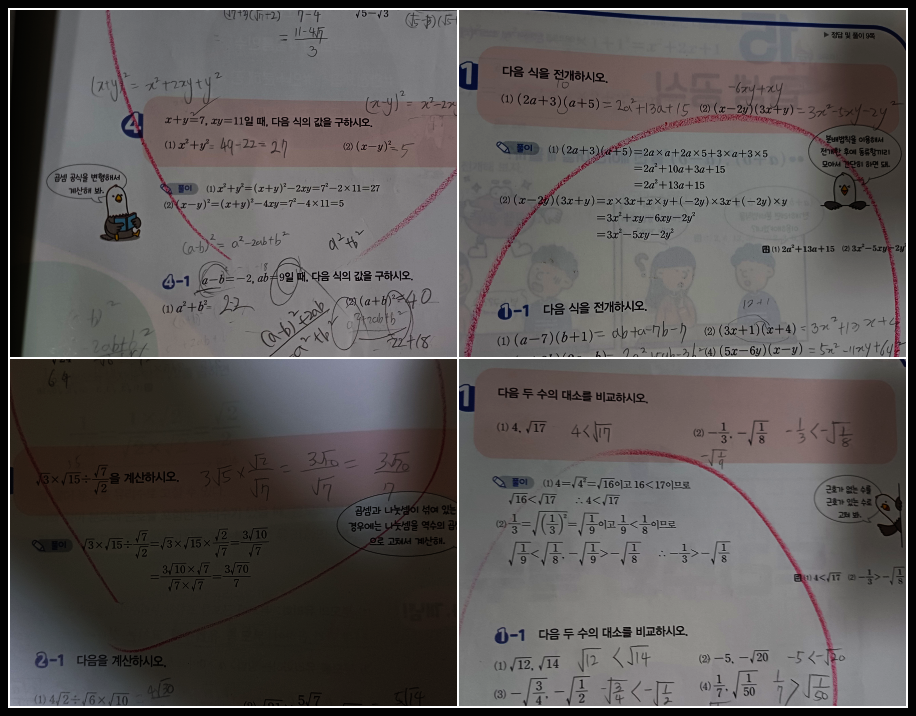 7-4
√5-√3
= (11-4√7)/3
(x+y)² = x²+2xy+y²
(x-y)² = x²-2x
4 x+y=7, xy=11일 때, 다음 식의 값을 구하시오.
(1) x²+y²= 49-22=27 (2) (x-y)²=5
곱셈 공식을 변형해서
계산해 봐.
풀이 (1) x²+y²=(x+y)²-2xy=7²-2×11=27
(2) (x-y)²=(x+y)²-4xy=7²-4×11=5
(a-b)² = a²-2ab+b² a²+b²
4-1 a-b=-2, ab=9일 때, 다음 식의 값을 구하시오.
(1) a²+b²= 22 (2) (a+b)²=40
(a-b)²+2ab
a²+b²
22+18
▶ 정답 및 풀이 9쪽
1 다음 식을 전개하시오.
10 -6xy+xy
(1) (2a+3)(a+5)= 2a²+13a+15 (2) (x-2y)(3x+y)=3x²-5xy-2y²
분배법칙을 이용해서
전개한 후에 동류항끼리
모아서 간단히 하면 돼.
풀이 (1) (2a+3)(a+5)=2a×a+2a×5+3×a+3×5
=2a²+10a+3a+15
=2a²+13a+15
(2) (x-2y)(3x+y)=x×3x+x×y+(-2y)×3x+(-2y)×y
=3x²+xy-6xy-2y²
=3x²-5xy-2y²
답 (1) 2a²+13a+15 (2) 3x²-5xy-2y²
1-1 다음 식을 전개하시오.
12+1
(1) (a-7)(b+1)= ab+a-7b-7 (2) (3x+1)(x+4)=3x²+13x+4
(4) (5x-6y)(x-y)=5x²-11xy+6y²
√3×√15÷√7/√2을 계산하시오.
3√5×√2/√7 = 3√10/√7 = 3√70/7
곱셈과 나눗셈이 섞여 있는
경우에는 나눗셈을 역수의 곱
으로 고쳐서 계산해.
풀이 √3×√15÷√7/√2=√3×√15×√2/√7=3√10/√7
=(3√10×√7)/(√7×√7)=3√70/7
2-1 다음을 계산하시오.
(1) 4√2÷√6×√10 = 4√30
5√7 5√14
1 다음 두 수의 대소를 비교하시오.
(1) 4, √17 4<√17 (2) -1/3, -√(1/8) -1/3<-√(1/8)
-√(1/9)
근호가 없는 수를
근호가 있는 수로
고쳐 봐.
풀이 (1) 4=√4²=√16이고 16<17이므로
√16<√17 ∴ 4<√17
(2) 1/3=√(1/3)²=√(1/9)이고 1/9<1/8이므로
√(1/9)<√(1/8), -√(1/9)>-√(1/8) ∴ -1/3>-√(1/8)
답 (1) 4<√17 (2) -1/3>-√(1/8)
1-1 다음 두 수의 대소를 비교하시오.
(1) √12, √14 √12 <√14 (2) -5, -√20 -5<-√20
(3) -√(3/4), -√(1/2) -√(3/4)<-√(1/2) (4) 1/7, √(1/50) 1/7>√(1/50)